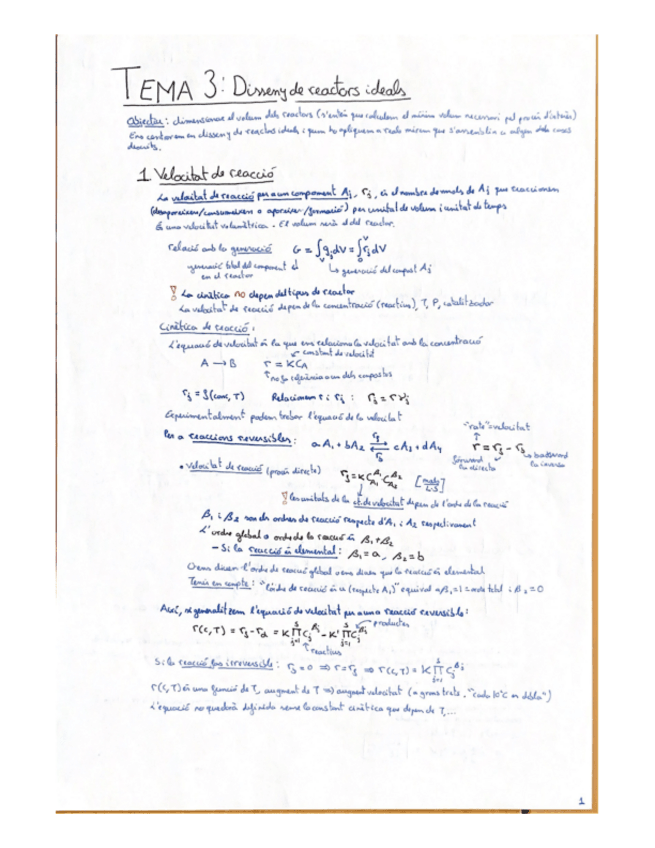 TEMA 3: Disseny de reactors ideals
Objectiu: dimensionar el volum dels reactors (s'entén que calculem el mínim volum necessari pel procés d'interès)
Ens centrarem en disseny de reactors ideals i quan ho apliquem a reals mirem que s'assemblin a algun dels casos
descrits.
1 Velocitat de reacció
La velocitat de reacció per a un component Aj, rj, és el nombre de mols de Aj que reaccionen
(desapareixen/consumeixen o apareixen/formació) per unitat de volum i unitat de temps
És una velocitat volumètrica. El volum serà el del reactor.
relació amb la generació G = ∫gjdV = ∫rjdV
generació total del component j
en el reactor
↳ generació del compost Aj
! La cinètica no depen del tipus de reactor
La velocitat de reacció depen de la concentració (reactius), T, P, catalitzador
Cinètica de reacció:
L'equació de velocitat és la que ens relaciona la velocitat amb la concentració
↙ constant de velocitat
A → B r = KCA
↑ no fa referència a un dels compostos
rj = f(conc, T) Relacionem r i rj : rj = r γj
Experimentalment podem trobar l'equació de la velocitat
"rate"=velocitat
Per a reaccions reversibles: aA1 + bA2 ⇄ cA3 + dA4
r = rf - rb
forward
la directa
↳ backward
la inversa
• velocitat de reacció (procés directe) rf = K CA1^β1 CA2^β2 [mols/L·s]
! les unitats de la ct. de velocitat depen de l'ordre de la reacció
β1 i β2 son els ordres de reacció respecte d'A1 i A2 respectivament
L'ordre global o ordre de la reacció és β1+β2
- Si la reacció és elemental: β1=a, β2=b
O ens diuen l'ordre de reacció global o ens diuen que la reacció és elemental
Tenir en compte: "l'ordre de reacció és α (respecte A1)" equival a β1=1=ordre total i β2=0
Així, si generalitzem l'equació de velocitat per a una reacció reversible:
productes
reactius
Si la reacció fos irreversible: rb = 0 ⇒ r=rf ⇒ r(c,T) = K∏ Cj^βj
r(c,T) és una funció de T, augment de T ⇒ augment velocitat (a grans trets, "cada 10ºC es dobla")
L'equació no quedarà definida sense la constant cinètica que depen de T,...
1